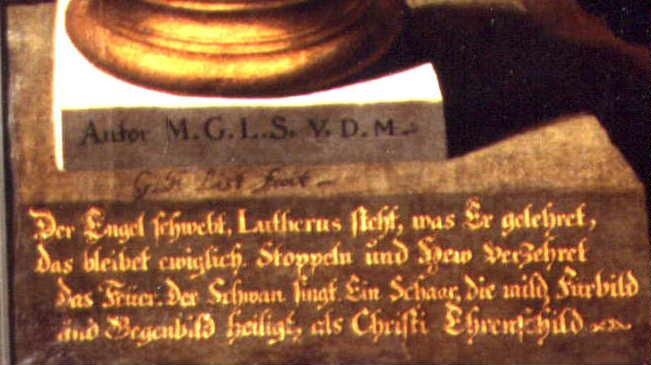 Autor M. G. L. S. V. D. M.
Der Engel schwebt, Lutherus steht, was Er gelehret,
das bleibet ewiglich. Stoppeln und Hew verzehret
das Früer. Der Schwan singt. Ein Schaar, die mild Fürbild
und Gegenbild heiligt, als Christi Ehrenschild